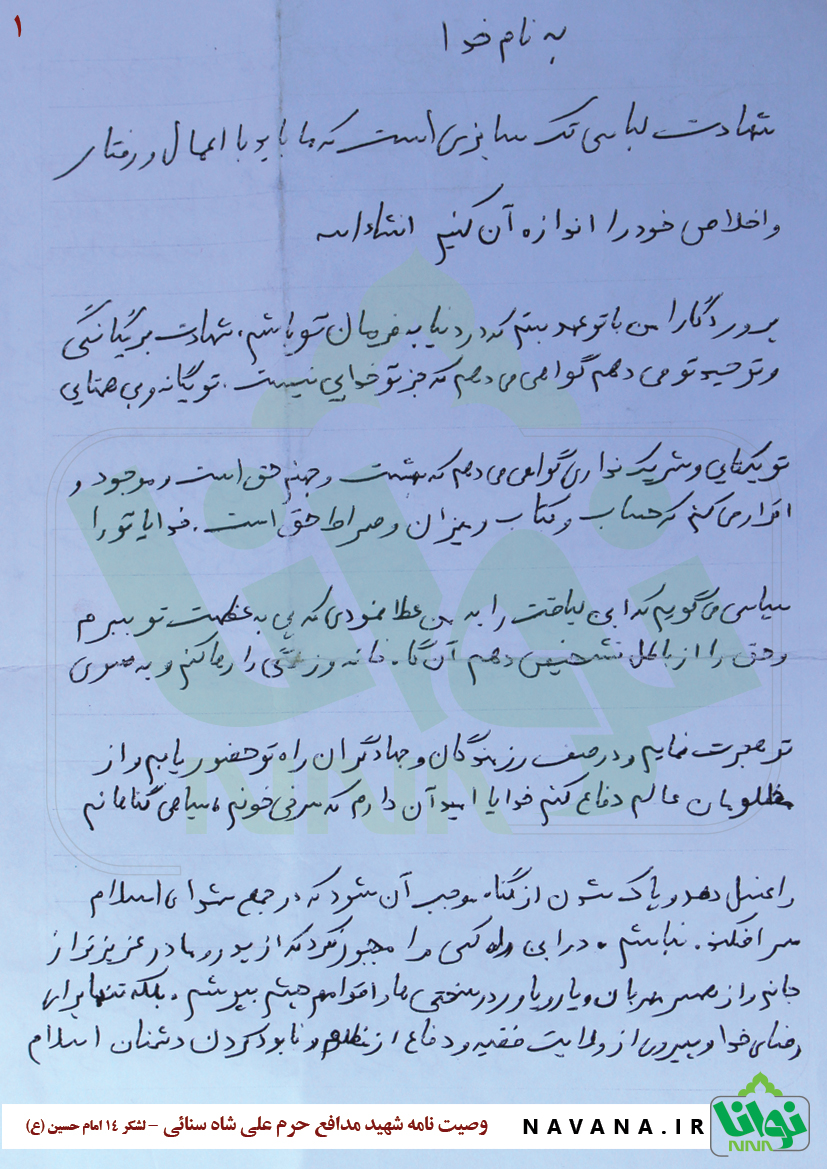 ۱
به نام خدا
شهادت لباسی تک سایزی است که ما باید با اعمال و رفتار
و اخلاص خود را اندازه آن کنیم انشاءاله
پروردگارا من با تو عهد بستم که در دنیا به فرمان تو باشم، شهادت بر یگانگی
و توحید تو می دهم گواهی می دهم که جز تو خدایی نیست. تو یگانه و بی همتایی
تو یکتایی و شریک نداری گواهی می دهم که بهشت و جهنم حق است و موجود و
اقرار می کنم که حساب و کتاب و میزان و صراط حق است. خدایا تو را
سپاس می گویم که این لیاقت را به من عطا نمودی که پی به عظمت تو ببرم
و حق را از باطل تشخیص دهم آن گاه خانه و زندگی را رها کنم و به سوی
تو هجرت نمایم و در صف رزمندگان و جهادگران راه تو حضور یابم و از
مظلومان عالم دفاع کنم خدایا امید آن دارم که سرخی خونم، سیاهی گناهانم
را غسل دهد و پاک شدن از گناه موجب آن شود که در جمع شهدای اسلام
سرافکنده نباشم. در این راه کسی مرا مجبور نکرد که از پدر و مادر عزیزتر از
جانم و از همسر مهربان و یار و یاور در سختی ها و اقوامم چشم بپوشم. بلکه تنها برای
رضای خدا و پیروی از ولایت فقیه و دفاع از مظلوم و نابود کردن دشمنان اسلام
نوانا
NNN
وصیت نامه شهید مدافع حرم علی شاه سنائی – لشکر ۱۴ امام حسین (ع)
NAVANA.IR
نوانا
NNN